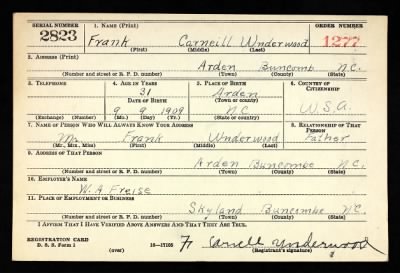 SERIAL NUMBER 1. NAME (Print) ORDER NUMBER
2823 Frank Carneill Underwood 1277
(First) (Middle) (Last)
2. ADDRESS (Print)
Arden Buncomb N.C.
(Number and street or R. F. D. number) (Town) (County) (State)
3. TELEPHONE 4. AGE IN YEARS 5. PLACE OF BIRTH 6. COUNTRY OF CITIZENSHIP
31 Arden
DATE OF BIRTH (Town or county)
9 9 1909 N.C. U.S.A.
(Exchange) (Number) (Mo.) (Day) (Yr.) (State or country)
7. NAME OF PERSON WHO WILL ALWAYS KNOW YOUR ADDRESS 8. RELATIONSHIP OF THAT PERSON
Mr. Frank Underwood Father
(Mr., Mrs., Miss) (First) (Middle) (Last)
9. ADDRESS OF THAT PERSON
Arden Buncombe N.C.
(Number and street or R. F. D. number) (Town) (County) (State)
10. EMPLOYER'S NAME
W. A. Freise
11. PLACE OF EMPLOYMENT OR BUSINESS
Skyland Buncombe N.C.
(Number and street or R. F. D. number) (Town) (County) (State)
I AFFIRM THAT I HAVE VERIFIED ABOVE ANSWERS AND THAT THEY ARE TRUE.
REGISTRATION CARD
D. S. S. Form 1 (over) 16—17105 Carnell Underwood
(Registrant's signature)